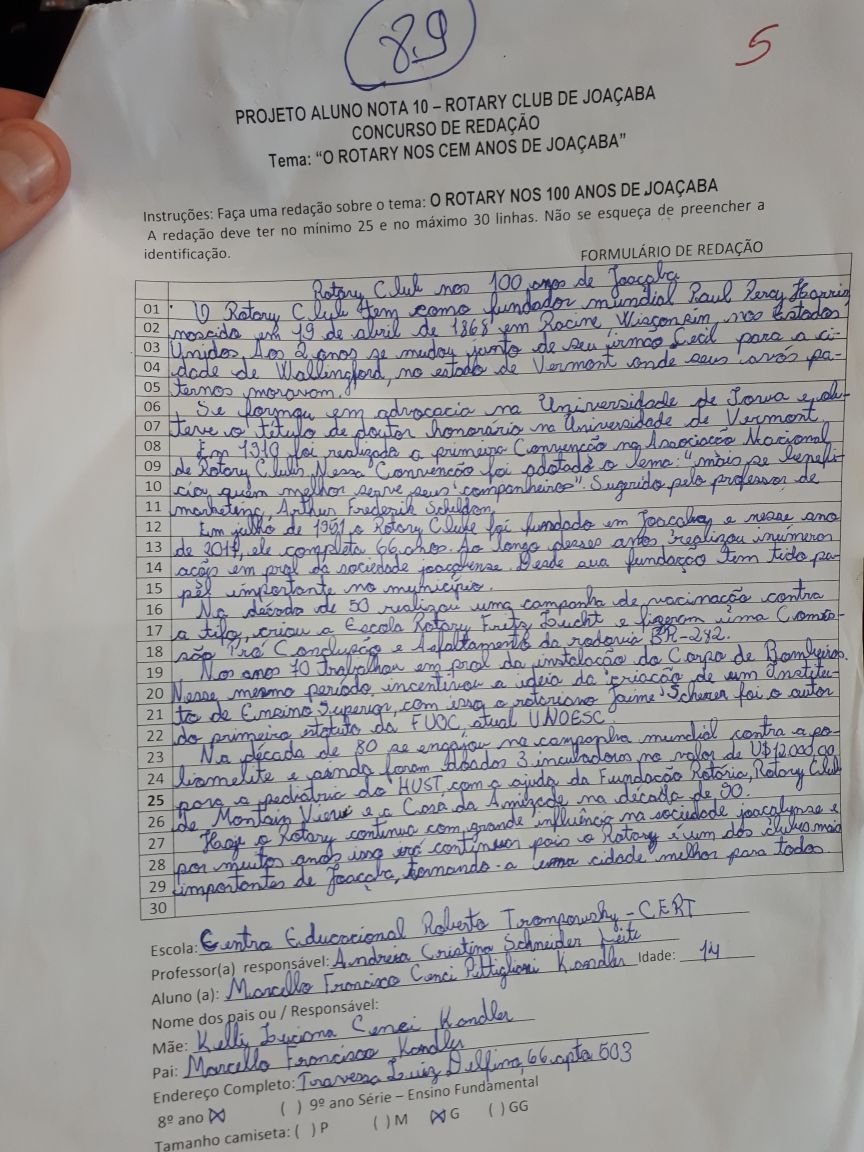 8.9
5
PROJETO ALUNO NOTA 10 – ROTARY CLUB DE JOAÇABA
CONCURSO DE REDAÇÃO
Tema: "O ROTARY NOS CEM ANOS DE JOAÇABA"
Instruções: Faça uma redação sobre o tema: O ROTARY NOS 100 ANOS DE JOAÇABA
A redação deve ter no mínimo 25 e no máximo 30 linhas. Não se esqueça de preencher a
identificação.
FORMULÁRIO DE REDAÇÃO
Rotary Club nos 100 anos de Joaçaba
01 O Rotary Club tem como fundador mundial Paul Percy Harris
02 nascido em 19 de abril de 1868 em Racine, Wisconsim nos Estados
03 Unidos. Aos 2 anos se mudou junto de seu irmão Cecil para a ci-
04 dade de Wallingford, no estado de Vermont onde seus avós pa-
05 ternos moravam.
06 Se formou em advocacia na Universidade de Iowa e ob-
07 teve o título de doutor honorário na Universidade de Vermont.
08 Em 1910 foi realizada a primeira Convenção na Associação Nacional
09 de Rotary Clubs. Nessa Convenção foi adotado o lema: "mais se benefi-
10 cia, quem melhor serve seus companheiros". Sugerido pelo professor de
11 marketing, Arthur Frederik Scheldon.
12 Em julho de 1951 o Rotary Clube foi fundado em Joaçaba, e nesse ano
13 de 2017, ele completa 66 anos. Ao longo desses anos realizou inúmeros
14 ações em prol da sociedade joaçabense. Desde sua fundação tem tido pa-
15 pel importante no município.
16 Na década de 50 realizou uma campanha de vacinação contra
17 a tifo, criou a Escola Rotary Fritz Lucht e fizeram uma Comis-
18 são Pró Conclupão e Asfaltamento da rodovia BR-282.
19 Nos anos 70 trabalhou em prol da instalação do Corpo de Bombeiros.
20 Nesse mesmo período, incentivou a ideia da criação de um Institu-
21 to de Ensino Superior, com isso o rotariano Jaime Scherer foi o autor
22 do primeiro estatuto da FUOC, atual UNOESC.
23 Na década de 80 se engajou na campanha mundial contra a po-
24 liomelite e ainda foram doados 3 incubadoras no valor de U$12.000,00
25 para a pediatria do HUST, com a ajuda da Fundação Rotária, Rotary Club
26 de Montain View e a Casa da Amizade na década de 90.
27 Hoje o Rotary continua com grande influência na sociedade joaçabense e
28 por muitos anos isso irá continuar pois o Rotary é um dos clubes mais
29 importantes de Joaçaba, tornando-a uma cidade melhor para todos.
30
Escola: Centro Educacional Roberto Trompowsky - CERT
Professor(a) responsável: Andreia Cristina Schneider Leite
Aluno (a): Marcello Francisco Cenci Pettiglioni Kandler Idade: 14
Nome dos pais ou / Responsável:
Mãe: Kelli Luciana Cenci Kandler
Pai: Marcello Francisco Kandler
Endereço Completo: Travessa Luiz Delfino, 66 apto 503
8º ano (X) ( ) 9º ano Série – Ensino Fundamental
Tamanho camiseta: ( ) P ( ) M (X) G ( ) GG